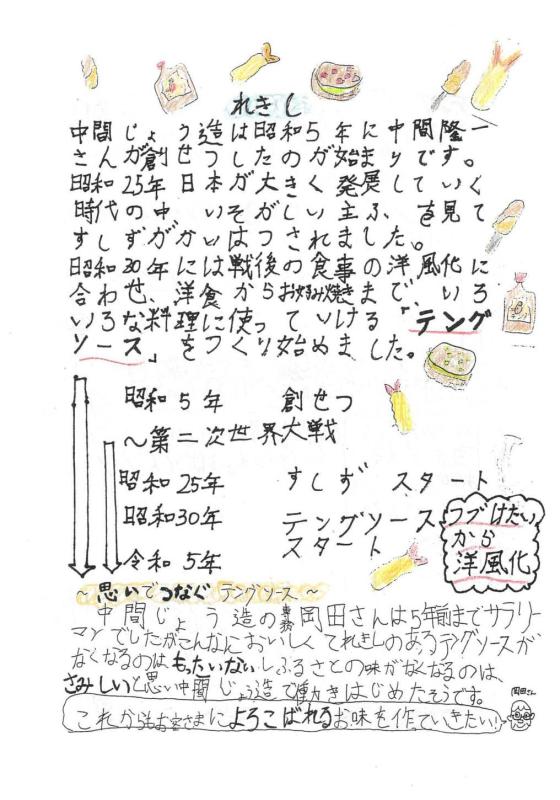 れきし
中間じょう造は昭和5年に中間隆一
さんが創せつしたのが始まりです。
昭和25年日本が大きく発展していく
時代の中、いそがしい主ふを見て
すしずがかいはつされました。
昭和30年には戦後の食事の洋風化に
合わせ、洋食からお好み焼きまで、いろ
いろな料理に使っていける「テング
ソース」をつくり始めました。
昭和5年 創せつ
~第二次世界大戦
昭和25年 すしず スタート
昭和30年 テングソース
スタート
令和5年
ラブけたい
から
洋風化
~思いでつなぐテングソース~
中間じょう造の専務岡田さんは5年前までサラリー
マンでしたがこんなにおいしくてれきしのあるテングソースが
なくなるのはもったいないしふるさとの味がなくなるのは、
さみしいと思い中間じょう造で働きはじめたそうです。
岡田さん
これからもお客さまによろこばれるお味を作っていきたい!